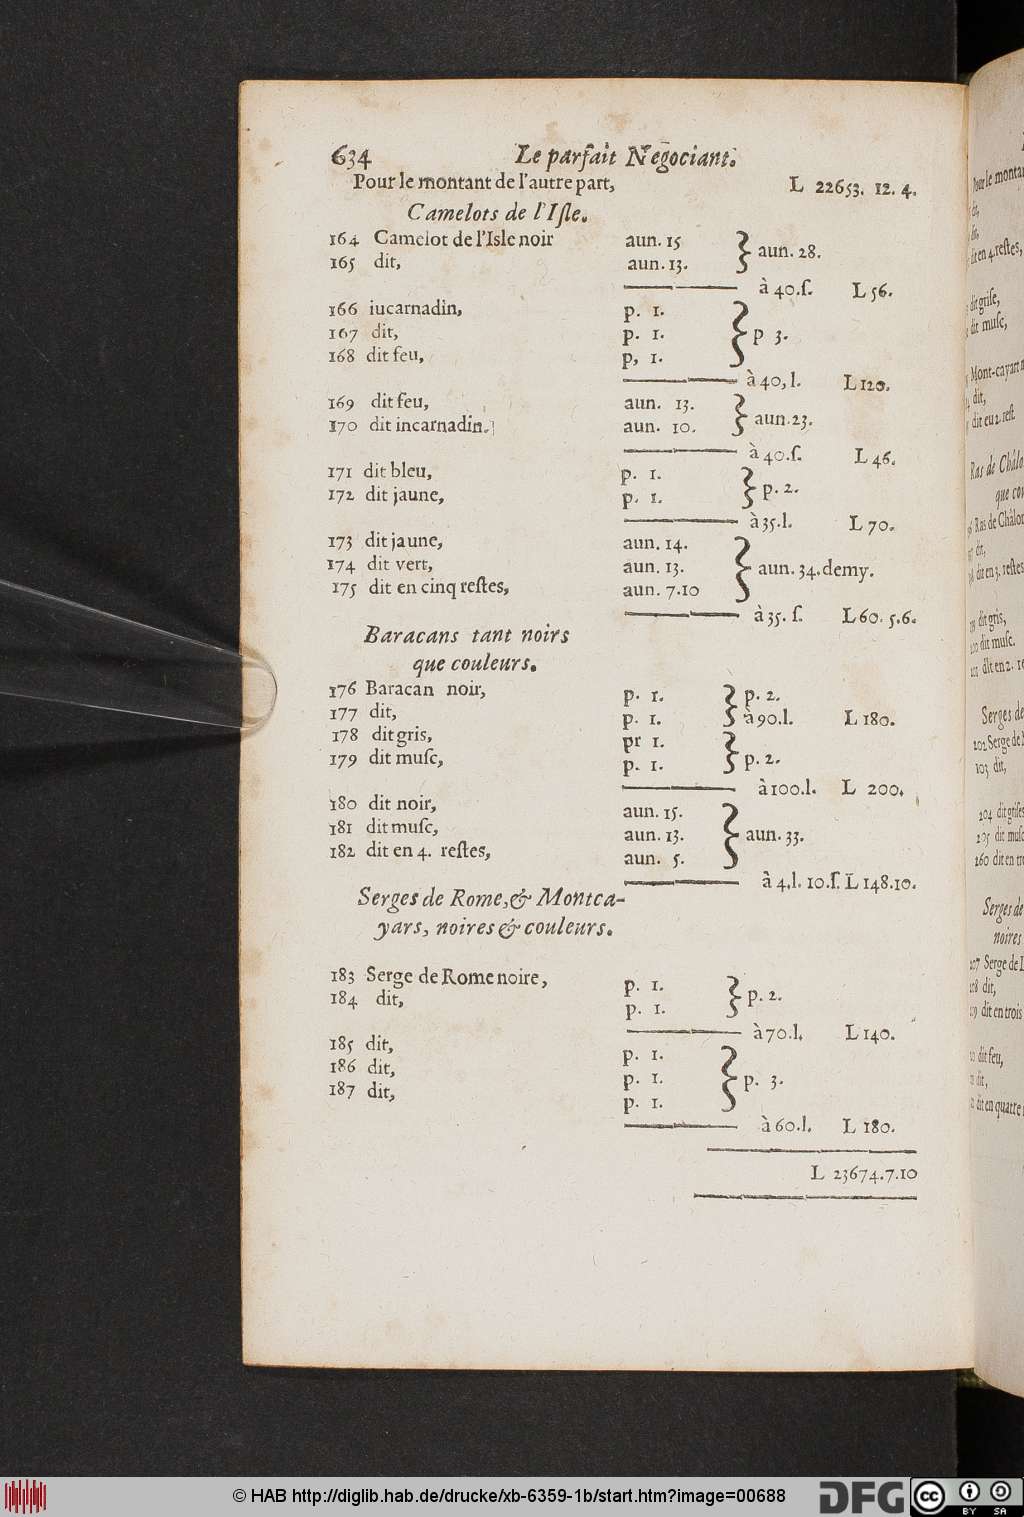 634 Le parfait Negociant.
Pour le montant de l'autre part, L 22653. 12. 4.
Camelots de l'Iſle.
164 Camelot de l'Isle noir aun. 15 } aun. 28.
165 dit, aun. 13.
à 40.ſ. L 56.
166 iucarnadin, p. 1.
167 dit, p. 1. } p 3.
168 dit feu, p, 1.
à 40, l. L 120.
169 dit feu, aun. 13. } aun.23.
170 dit incarnadin. aun. 10.
à 40.ſ. L 46.
171 dit bleu, p. 1. } p. 2.
172 dit jaune, p. 1.
à 35.l. L 70.
173 dit jaune, aun. 14.
174 dit vert, aun. 13. } aun. 34. demy.
175 dit en cinq reſtes, aun. 7.10
à 35. ſ. L 60. 5.6.
Baracans tant noirs
que couleurs.
176 Baracan noir, p. 1. } p. 2.
177 dit, p. 1. à 90.l. L 180.
178 dit gris, pr 1. } p. 2.
179 dit muſc, p. 1.
à 100.l. L 200.
180 dit noir, aun. 15.
181 dit muſc, aun. 13. } aun. 33.
182 dit en 4. reſtes, aun. 5.
à 4.l. 10.ſ. L 148.10.
Serges de Rome, & Montca-
yars, noires & couleurs.
183 Serge de Rome noire, p. 1. } p. 2.
184 dit, p. 1.
à 70.l. L 140.
185 dit, p. 1.
186 dit, p. 1. } p. 3.
187 dit, p. 1.
à 60.l. L 180.
L 23674.7.10
© HAB http://diglib.hab.de/drucke/xb-6359-1b/start.htm?image=00688
DFG
cc BY SA